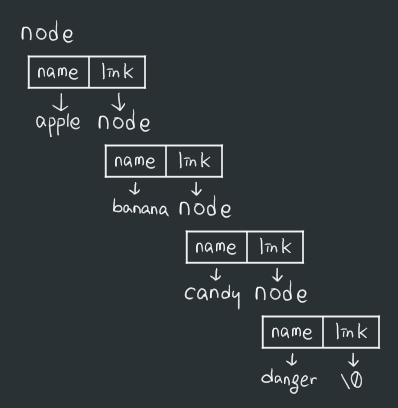 node
name link
apple node
name link
banana node
name link
candy node
name link
danger \0